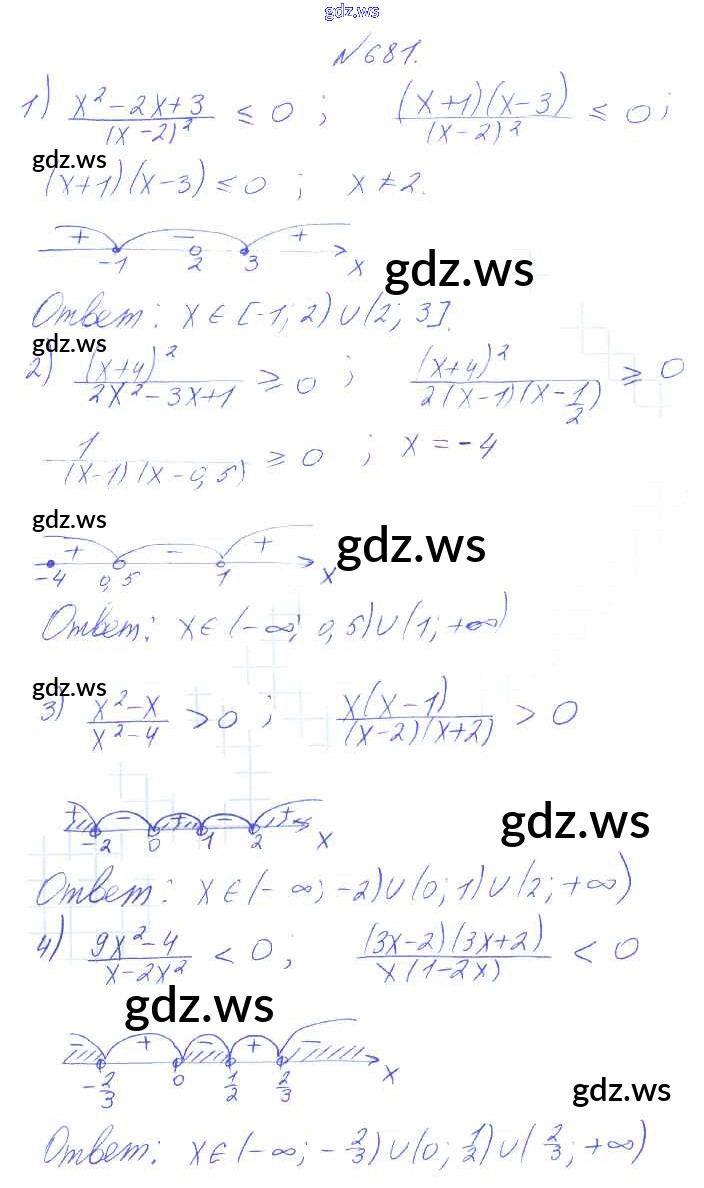 gdz.ws
№681.
1) (x²-2x+3)/(x-2)² ≤ 0 ; ((x+1)(x-3))/(x-2)² ≤ 0 ;
gdz.ws
(x+1)(x-3) ≤ 0 ; x ≠ 2.
+ - +
-1 2 3 x
gdz.ws
Ответ: x ∈ [-1; 2) ∪ (2; 3].
gdz.ws
2) (x+4)²/(2x²-3x+1) ≥ 0 ; (x+4)²/(2(x-1)(x-1/2)) ≥ 0
1/((x-1)(x-0,5)) ≥ 0 ; x = -4
gdz.ws
gdz.ws
+ - +
-4 0,5 1 x
Ответ: x ∈ (-∞; 0,5) ∪ (1; +∞)
gdz.ws
3) (x²-x)/(x²-4) > 0 ; (x(x-1))/((x-2)(x+2)) > 0
+ - + - +
-2 0 1 2 x
gdz.ws
Ответ: x ∈ (-∞; -2) ∪ (0; 1) ∪ (2; +∞)
4) (9x²-4)/(x-2x²) < 0 ; ((3x-2)(3x+2))/(x(1-2x)) < 0
gdz.ws
- + - + -
-2/3 0 1/2 2/3 x
gdz.ws
Ответ: x ∈ (-∞; -2/3) ∪ (0; 1/2) ∪ (2/3; +∞)